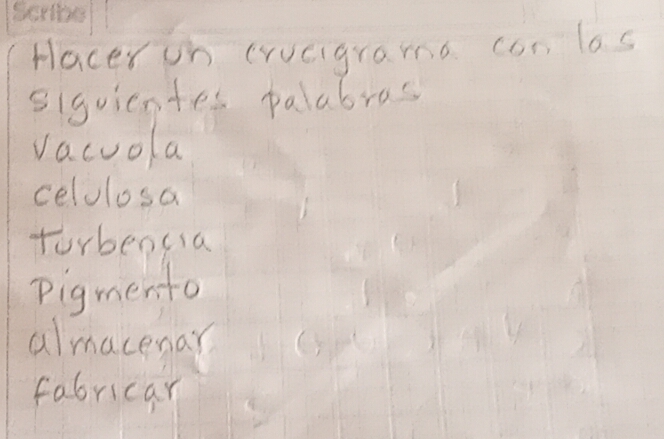 Scribe
Hacer un crucigrama con las
siguientes palabras
vacuola
celulosa
turbencia
Pigmento
almacenar
fabricar